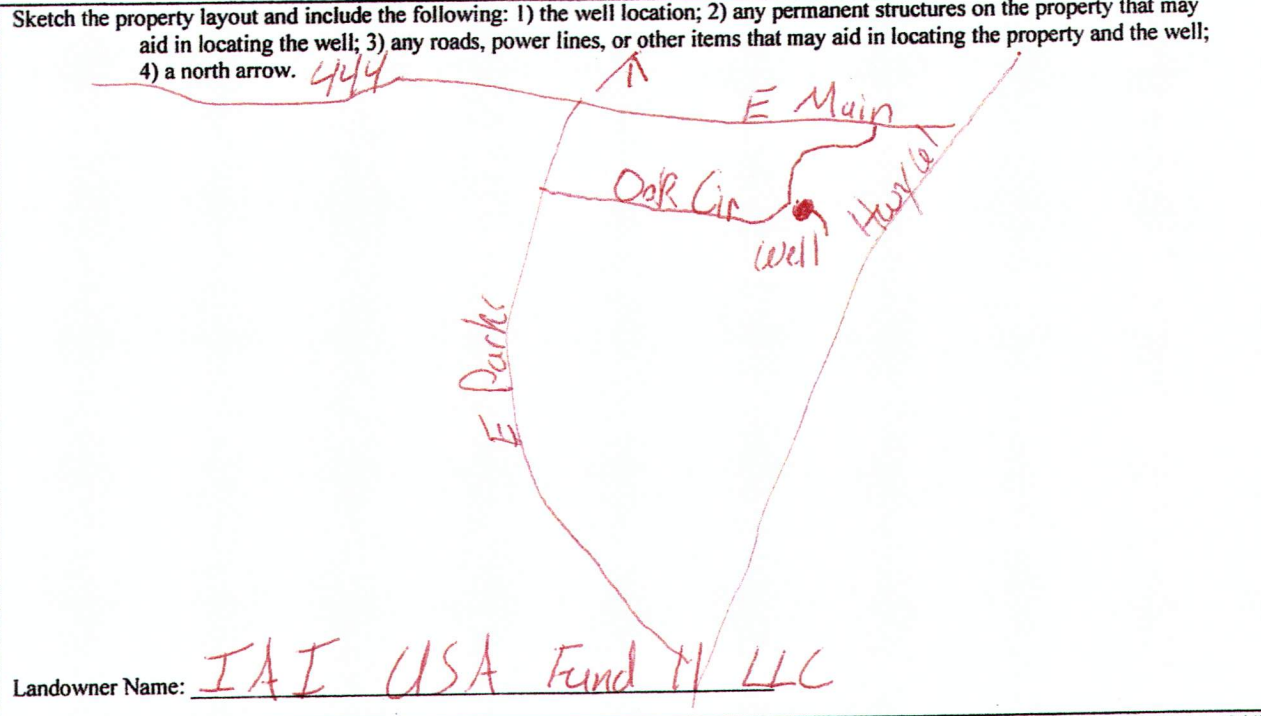 Sketch the property layout and include the following: 1) the well location; 2) any permanent structures on the property that may
aid in locating the well; 3) any roads, power lines, or other items that may aid in locating the property and the well;
4) a north arrow.
444
E Main
Cir
Well
E
Landowner Name: IAI USA Fund II LLC